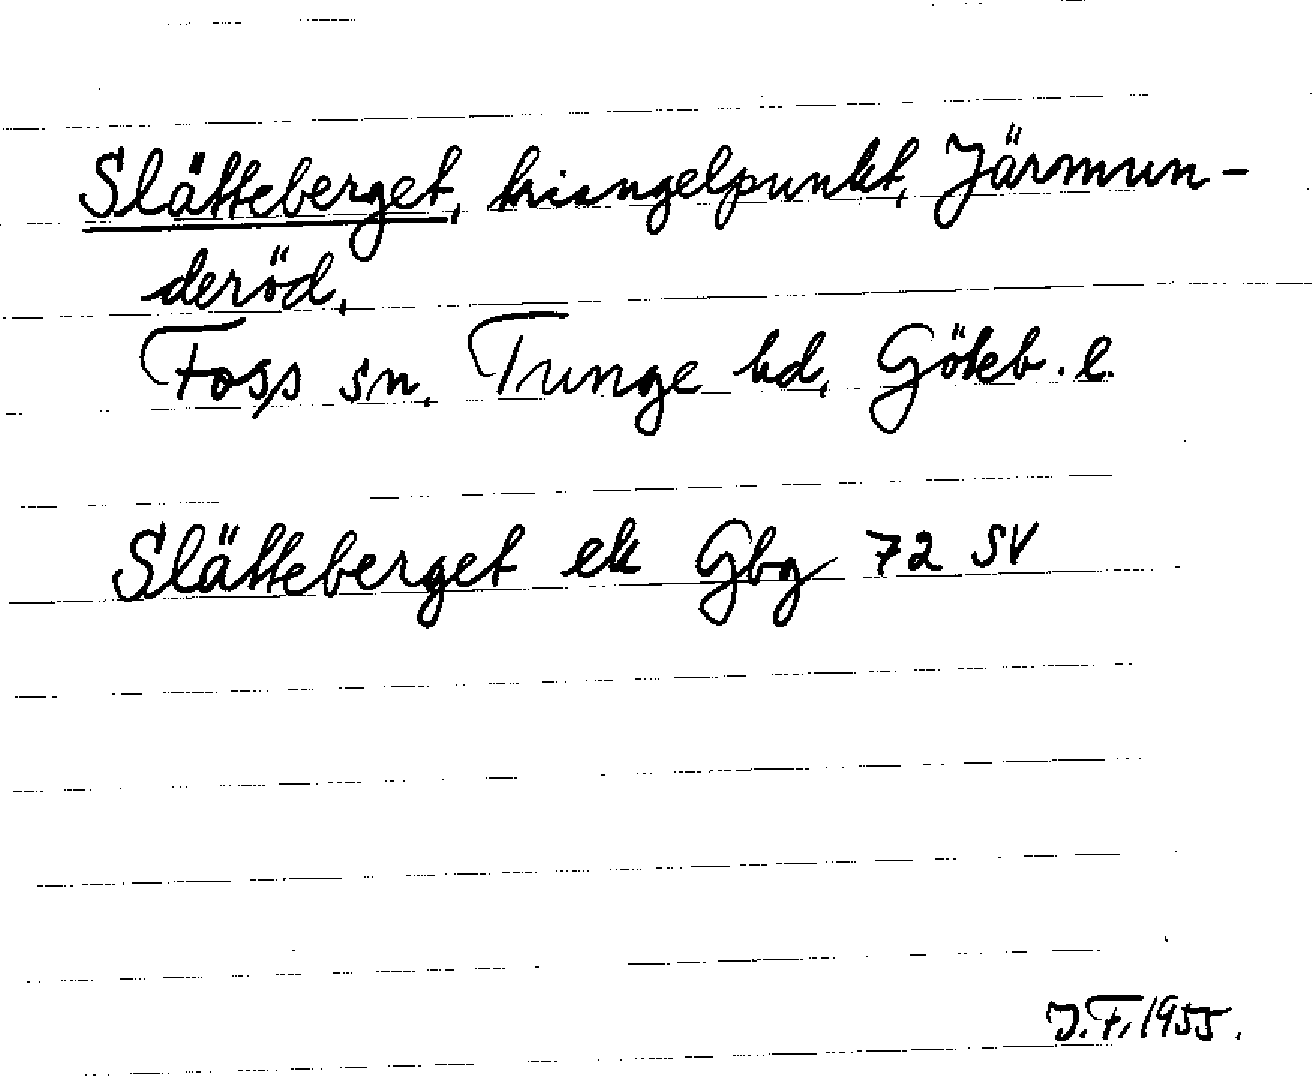 Slätteberget, triangelpunkt, Järmun-
deröd,
Foss sn, Tunge hd, Göteb. l.
Slätteberget ek Gbg 72 SV
J.F. 1955.